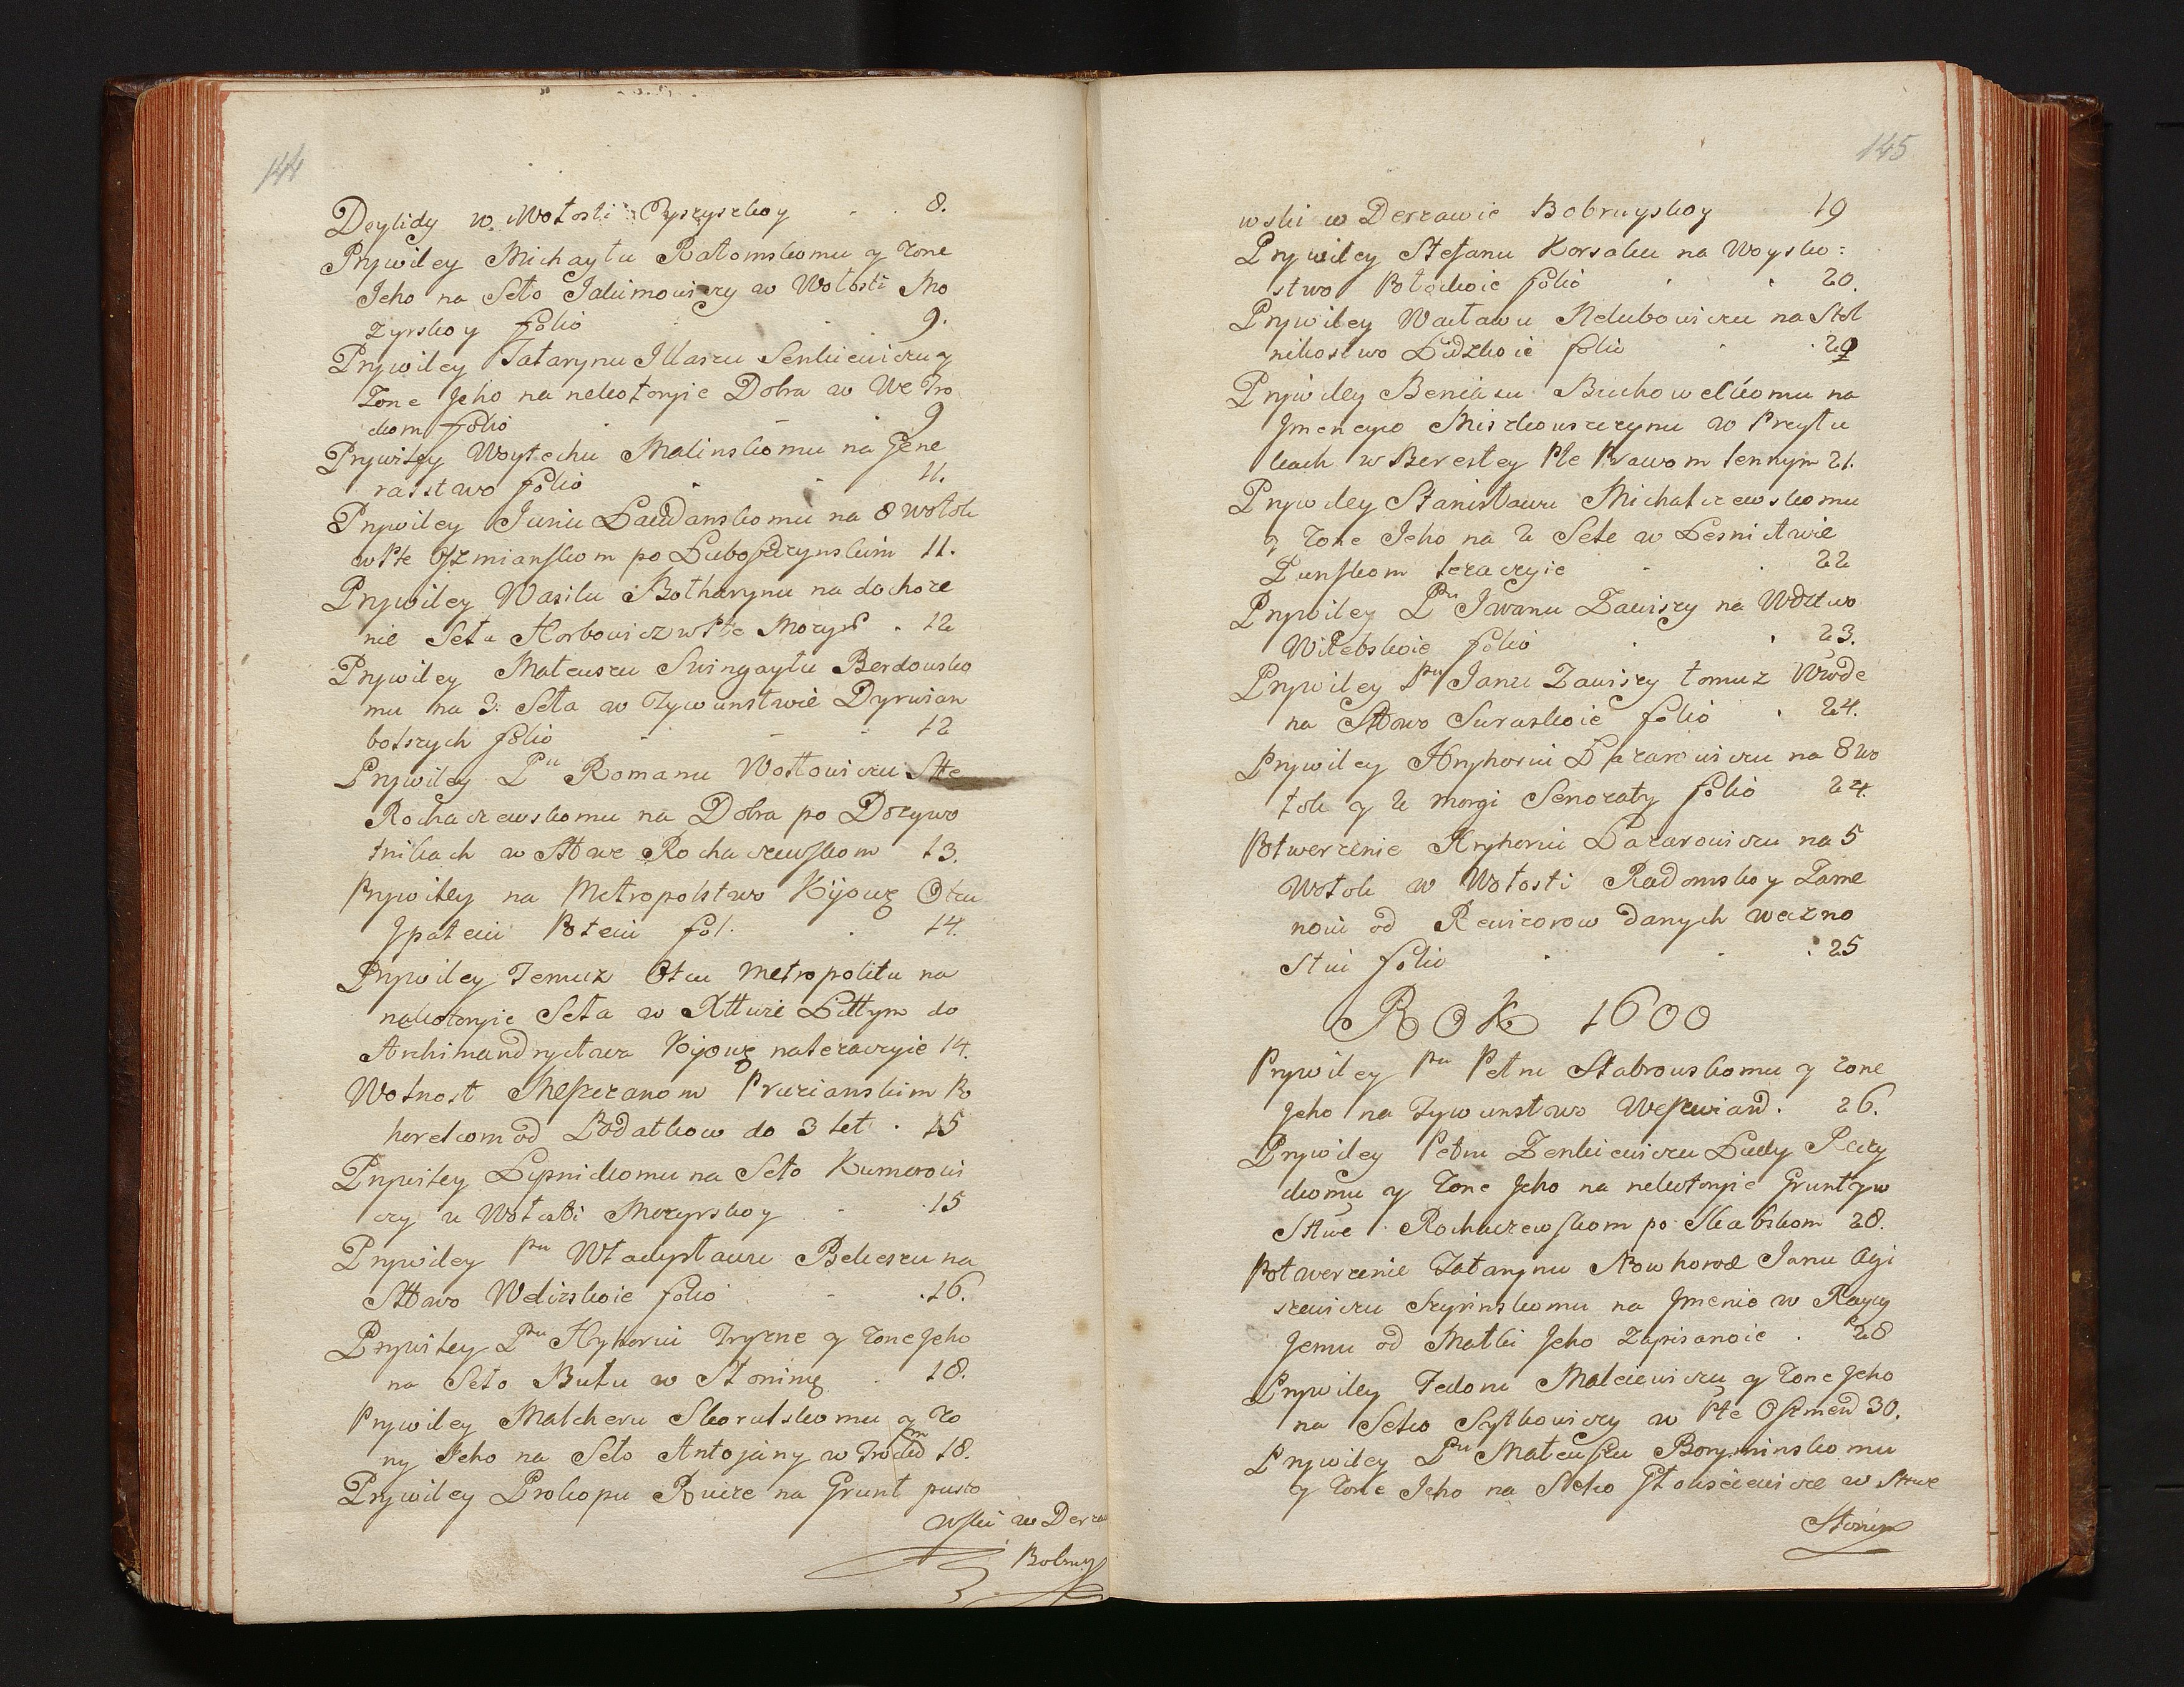 144
Deylidy w Wołosti Pyszyszkoy 8.
Prywiley Michayłu Ratomskomu y żone
Jeho na Seło Jakimowiczy w Wołosti Mo
zyrskoy folio 9.
Prywiley Tatarynu Illaszu Senkiewiczu y
Żone Jeho na nekotoryie Dobra w We Tro
ckom folio 9
Prywiley Woytechu Malinskomu na Gene
ralstwo folio 11.
Prywiley Juriu Laudanskomu na 8 wołok
w Pte Oszmianskom po Luboszczynskim 11.
Prywiley Wasilu Botharynu na dochoże
nie Seła Horbowicz w Pte Mozyr 12
Prywiley Mateuszu Swingayłu Berdowsko
mu na 3. Seła w Tywunstwie Dyrwian
bolszych folio 12
Prywiley Pu Romanu Wołłowiczu Stte
Rochaczewskomu na Dobra po Dożywo
tnikach w Sttwe Rochaczewskom 13.
Prywiley na Metropolstwo Kijow Otcu
Jpateiu Poteiu fol. 14.
Prywiley Temuż Otcu Metropolitu na
nekotoryie Seła w Xttwie Littym do
Archimandryctwa Kijow należaczyie 14.
Wolnost Meszczanom Prużianskim Po
horełcom od Podatkow do 3 let 15
Prywiley Lipnickomu na Seło Kumarowi
czy u Wołosti Mozyrskoy 15
Prywiley Pu Władysławu Bekeszu na
Sttwo Weliżskoie folio 16.
Prywiley Pu Hryhoriu Tryzne y żone Jeho
na Seło Bułu w Słonimę 18.
Prywiley Malcheru Skorulskomu y żo
ny Jeho na Seło Antojany w Trockm 18.
Prywiley Prokopu Ruize na Grunt pusto
wski w Derża
Bobruy
145
wski w Derżawie Bobruyskoy 19
Prywiley Stefanu Korsaku na Woysko:
stwo Połockoie folio 20.
Prywiley Wacławu Nelubowiczu na Stol
nikostwo Lidzkoie folio 20
Prywiley Beniaszu Buchoweckomu na
Jmeneyco Miszkowszczynu w Pryłu
kach w Berestey Pte Prawom lennym 21.
Prywiley Stanisławu Michałczewskomu
y żone Jeho na 2 Sele w Lesnictwie
Punskom leżaczyie 22
Prywiley Pu Jwanu Zawiszy na Wdztwo
Witebskoie folio 23.
Prywiley Pu Janu Zawiszy tomuż Wwode
na Sttwo Suraskoie folio 24.
Prywiley Hryhoriu Łazarowiczu na 8 wo
łok y 2 morgi Senożaty folio 24.
Potwerżenie Hryhoriu Łazarowiczu na 5
Wołok w Wołosti Radomskoy Tame
noiu od Rewizorow danych weczno
stiu folio 25
ROK 1600
Prywiley Pu Petru Stabrowskomu y żone
Jeho na Tywunstwo Weszwian. 26.
Prywiley Petru Zenkiewiczu Ludy Reczy
ckomu y Żone Jeho na nekotoryie Grunty w
Sttwe Rochaczewskom po Skabskom 28.
Potwerżenie Tatarynu Nowhorod Janu Agi
szewiczu Szyrinskomu na Jmenie w Rayey
Jemu od Matki Jeho zapisanoie 28
Prywiley Fedoru Malciewiczu y żone Jeho
na Selco Sytkowiczy w Pte Oszmen 30.
Prywiley Pu Mateuszu Boryminskomu
y Żone Jeho na Selco Głowsiewicze w Sttwe
Słonim